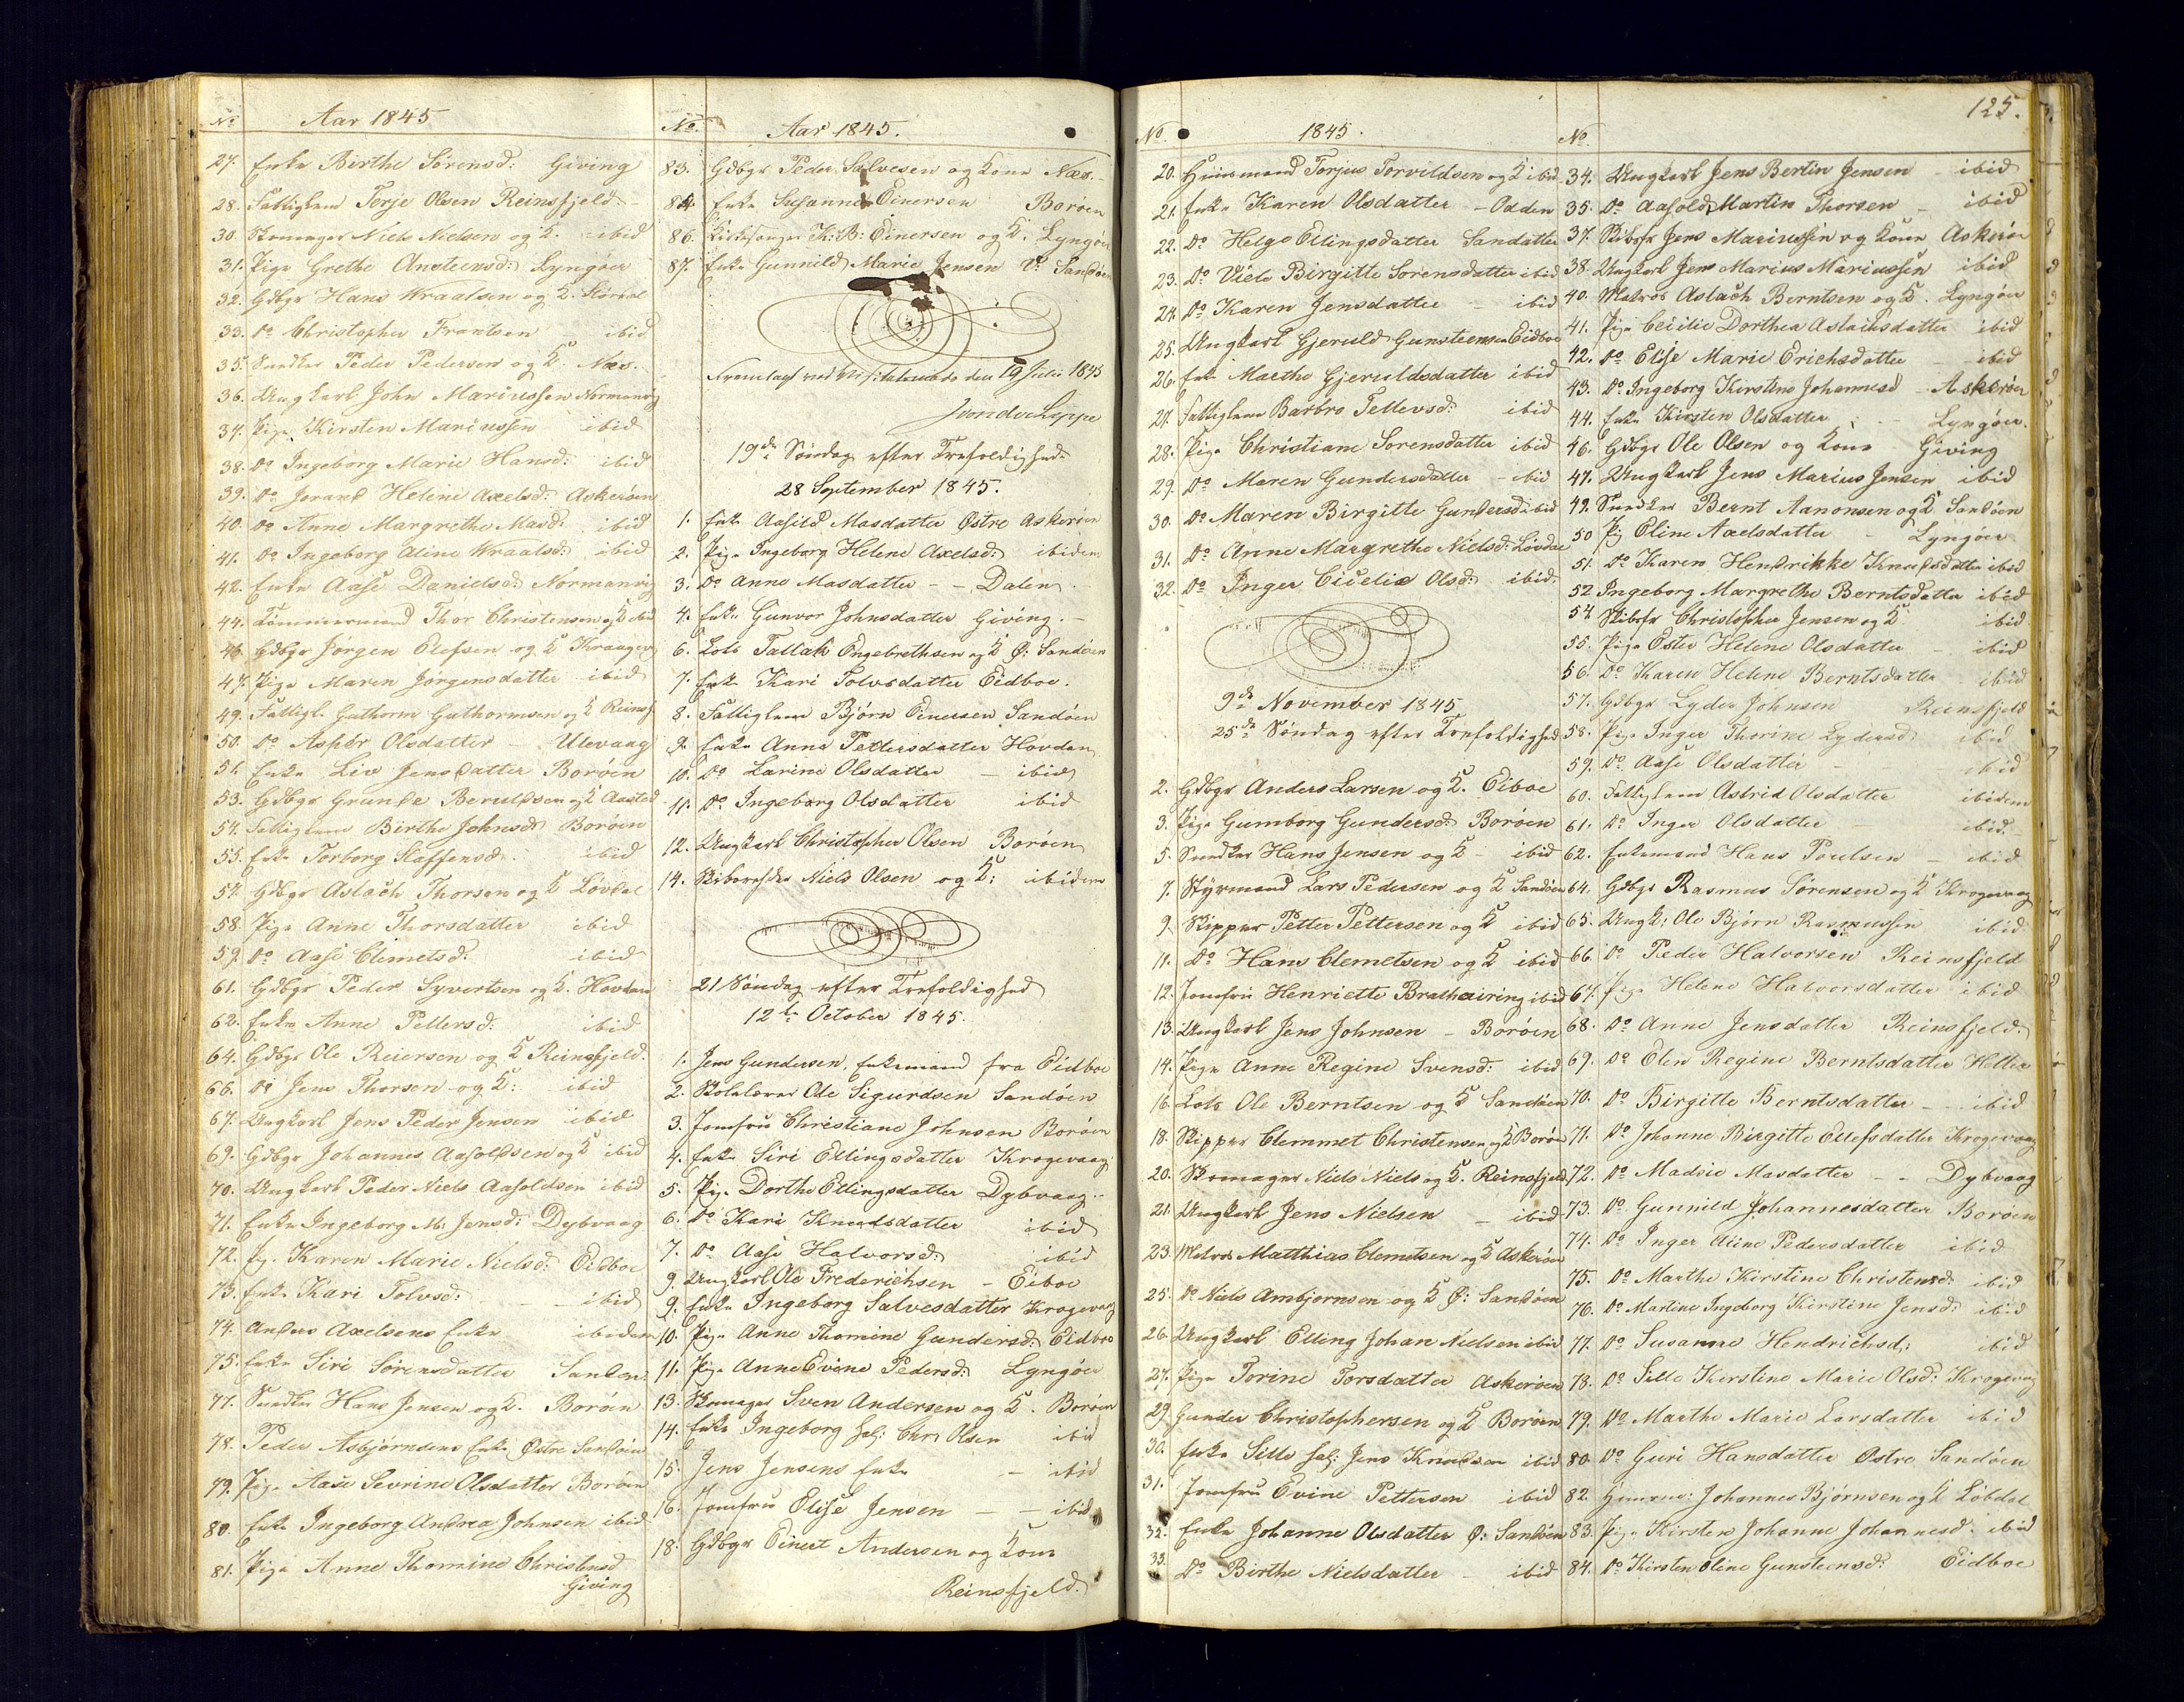 No
Aar 1845
27. Enke Birthe Sörensd: Giving
28. Fattiglem Terje Olsen Reinsfjeld
30. Skomager Niels Nielsen og K. - ibid
31. Pige Grethe Ansteensd: Lyngöer
32. Gdbgr Hans Wraalsen og K.
33. Do Christopher Frantsen - ibid
35. Peder Pedersen og K. Næs.
36. Ungkarl John Mariussen Normanvig
37. Pige Kirsten Mariussen ibid
38. Do Ingeborg Marie Hansd: ibid
39. Do Jorand Helene Axelsd: Askeröen
40. Do Anne Margrethe Masd: ibid
41. Do Ingeborg Aline Wraalsd: ibid
42. Enke Aase Danielsd: Normanvig
44. Tömmermand Thor Christensen og K ibid
46. Gdbgr Jörgen Olefsen og K Kraagevg
47. Pige Maren Jörgensdatter ibid
49. Fattigl. Guthorm Guthormsen og K Reinsfj
50. Do Asper Olsdatter - Ulevaag
51. Enke Liv Jensdatter Boröen
53. Gdbgr Grunde Beruldsen og K Aasted
54. Fattiglem Birthe Johnsd: Boröen
55. Enke Torborg Staffensd: ibid
57. Gdbgr Aslach Thorsen og K Lövdal
58. Pige Anne Thorsdatter ibid
59. Do Aase Clemetsd: ibid
61. Gdbgr Peder Syvertsen og K. Hovden
62. Enke Anne Pettersd: ibid
64. Gdbgr Ole Reiersen og K Reinsfjeld.
66. Do Jens Thorsen og K: ibid
67. Ungkarl Jens Peder Jensen ibid
69. Gdbgr Johannes Aasoldsen og K ibid
70. Ungkarl Peder Niels Aasoldsen ibid
71. Enke Ingeborg M: Jensd: Dybvaag
72. Pg. Karen Marie Nielsd: Eidboe
73. Enke Kari Tolvsd: - ibid
74. Anders Axelsens Enke ibidem
75. Enke Siri Sörensdatter Sandöen
77. Hans Jensen og K. Boröen
78. Peder Asbjörnsens Enke Östre Sandöen
79. Pige Aase Sevrine Olsdatter Boröen
80. Enke Ingeborg Andrea Johnsen ibid
81. Pige Anne Thomine Christensd
Giving
No.
Aar 1845.
83. Gdbgr Peder Salvesen og Kone Næs.
84. Enke Susanne Einersen Boröen
86. Kirkesanger K: B: Einersen og K. Lyngöer
87. Enke Gunnild Marie Jensen V: Sandöen
Fremlagt ved Visitatsen den 19 Julii 1845
von der Lippe
19de Söndag efter Trefoldighed
28 September 1845.
1. Enke Aasild Masdatter Östre Askeröen
2. Pige Ingeborg Helene Axelsd: ibidem
3. Do Anne Masdatter - - Dalen
4. Enke Gunvor Johnsdatter Giving.
6. Lods Tallak Engebrethsen og K Ö: Sandöen
7. Enke Kari Tolvsdatter Eidboe.
8. Fattiglem Björn Einersen Sandöen
9. Enke Anne Pettersdatter Hovden
10. Do Larine Olsdatter - ibid
11. Do Ingeborg Olsdatter ibid
12. Ungkarl Christopher Olsen Boröen
14. Niels Olsen og K: ibidem
21 Söndag efter Trefoldighed
12te October 1845.
1. Jens Gundersen, Enkemand fra Eidboe
2. Skolelærer Ole Sigurdsen Sandöen
3. Jomfru Christiane Johnsen Boröen
4. Enke Siri Ellingsdatter Krogevaag
5. Pige Dorthe Ellingsdatter Dybvaag
6. Do Kari Knudsdatter ibid
7. Do Aase Halvorsd: ibid
9. Ungkarl Ole Frederichsen - Eiboe
9. Enke Ingeborg Salvesdatter Krogevaag
10. Pige Anne Thomine Gundersd: Eidboe
11. Pige Anne Evine Pedersd: Lyngöer
13. Skomager Sven Andersen og K. Boröen
14. Enke Ingeborg sal: Chr: Olsen ibid
15. Jens Jensens Enke - ibid
16. Jomfru Elise Jensen - - ibid
18. Gdbgr Einert Andersen og Kone
Reinsfjeld.
No.
1845.
20. Huusmand Torjus Torvildsen og K ibid
21. Enke Karen Olsdatter - Odden
22. Do Helge Ellingsdatter Sandatter
23. Do Viele Birgitte Sorensdatter ibid
24. Do Karen Jensdatter - ibid
25. Ungkarl Gjeruld Gunsteensen Eidboe
26. Enke Marthe Gjeruldsdatter ibid
27. Fattiglem Barbro Tellevsd: ibid
28. Pige Christiane Sorensdatter ibid
29. Do Maren Gundersdatter - ibid
30. Do Maren Birgitte Gundersd: ibid
31. Do Anne Margrethe Nielsd: Lövdal
32. Do Inger Cicelie Olsd: ibid.
9de November 1845
25de Söndag efter Trefoldighed
2. Gdbgr Anders Larsen og K. Eiboe
3. Pige Gumborg Gundersd: Boröen
5. Hans Jensen og K - ibid
7. Styrmand Lars Pedersen og K Sandöen
9. Skipper Petter Pettersen og K ibid
11. Do Hans Clemetsen og K ibid
12. Jomfru Henriette Brathairing ibid
13. Ungkarl Jens Johnsen - Boröen
14. Pige Anne Regine Svensd: ibid
16. Lods Ole Berntsen og K Sandöen
18. Skipper Clemmet Christensen og K Boröen
20. Skomager Niels Niels og K. Reinsfjeld
21. Ungkarl Jens Nielsen - ibid
23. Matros Matthias Clemetsen og K Askeröen
25. Do Niels Ambjornsen og K Ö: Sandöen
26. Ungkarl Elling Johan Nielsen ibid
27. Pige Torine Torsdatter Askeröen
29. Gunder Christophersen og K Boröen
30. Enke Sille sal: Jens Knudsen ibid
31. Jomfru Evine Pettersen ibid
32. Enke Johanne Olsdatter Ö: Sandöen
33. Do Birthe Nielsdatter - ibid
No
125.
34. Ungkarl Jens Bertin Jensen - ibid
35. Do Aasold Martin Thorsen - ibid
37. Jens Mariussen og Kone Askeröen
38. Ungkarl Jens Marius Mariussen ibid
40. Matros Aslach Berntsen og K. Lyngöer
41. Pige Cecilie Dorthea Aslachsdatter ibid
42. Do Elise Marie Erichsdatter - ibid
43. Do Ingeborg Kirstine Johannesd - Askeröen
44. Enke Kirsten Olsdatter - Lyngöer.
46. Gdbgr Ole Olsen og Kone Giving
47. Ungkarl Jens Marius Jensen ibid
49. Bernt Aanonsen og K Sandöen
50 Pig Eline Axelsdatter - Lyngöer
51. Do Karen Hendrikke Knudsdatter ibid
52 Ingeborg Margrethe Berntsdatter ibid
54 Christopher Jensen og K ibid
55. Pige Ester Helene Olsdatter - ibid
56. Do Karen Helene Berntsdatter ibid
57. Gdbgr Lyder Johnsen Reinsfjeld
58. Pige Inger Thorine Lydersd: ibid
59. Do Aase Olsdatter - ibid
60. Fattiglem Astrid Olsdatter ibidem
61. Do Inger Olsdatter - ibid.
62. Enkemand Hans Poulsen - ibid
64. Gdbgr Rasmus Sörensen og K Krogevaag
65. Ungk: Ole Björn Rasmussen ibid
66. Do Peder Halvorsen Reinsfjeld
67. Pige Helene Halvorsdatter ibid
68. Do Anne Jensdatter Reinsfjeld.
69. Do Elen Regine Berntsdatter Helter
70. Do Birgitte Berntsdatter - ibid
71. Do Johanne Birgitte Ellefsdatter Krogevaag
72. Do Madsie Masdatter - - Dybvaag
73. Do Gunnild Johannesdatter Boröen
74. Do Inger Aline Pedersdatter ibid
75. Do Marthe Kirstine Christensd: ibid
76. Do Martine Ingeborg Kirstine Jensd: ibid
77. Do Susanne Hendrichsd: ibid
78. Do Sille Kirstine Marie Olsd: Krogevag
79. Do Marthe Marie Larsdatter ibid
80. Do Guri Hansdatter Östre Sandöen
82. Johannes Björnsen og K Löbdal
83. Pige Kirsten Johanne Johannesd. ibid
84. Do Kirsten Eline Gunsteensd: Eidboe